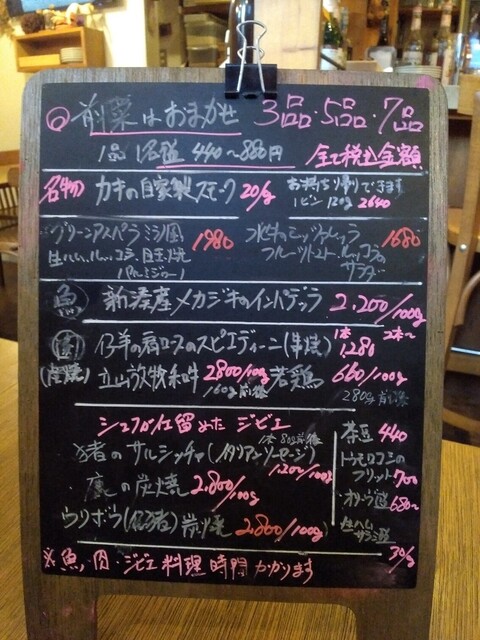 前菜はおまかせ 3品・5品・7品
1品1名盛 440〜880円 全て税込金額
名物 カキの自家製スモーク 20/g お持ち帰りできます
1ビン 120g 2640
グリーンアスパラ ミラノ風 1980
生ハム、ルッコラ、目玉焼
水牛のモッツァレッラ 1680
フルーツトマト、ルッコラの
サラダ
魚 新湊産メカジキのインパデッラ 2,200/100g
肉 仔羊の肩ロースのスピエディーニ(串焼) 1本 1280 2本〜
(炭焼) 立山放牧和牛 2800/100g 若鶏 660/100g
160g前後 280g前後
シェフが仕留めた ジビエ
猪のサルシッチャ(イタリアンソーセージ)
1本80g前後 1200/100g
・鹿の炭焼 2,800/100g
ウリボウ(仔猪)炭焼 2,800/100g
茶豆 440
トウモロコシの
フリット 700
・オリーヴ 680〜
生ハム
サラミ 30/g
※魚・肉・ジビエ料理 時間かかります